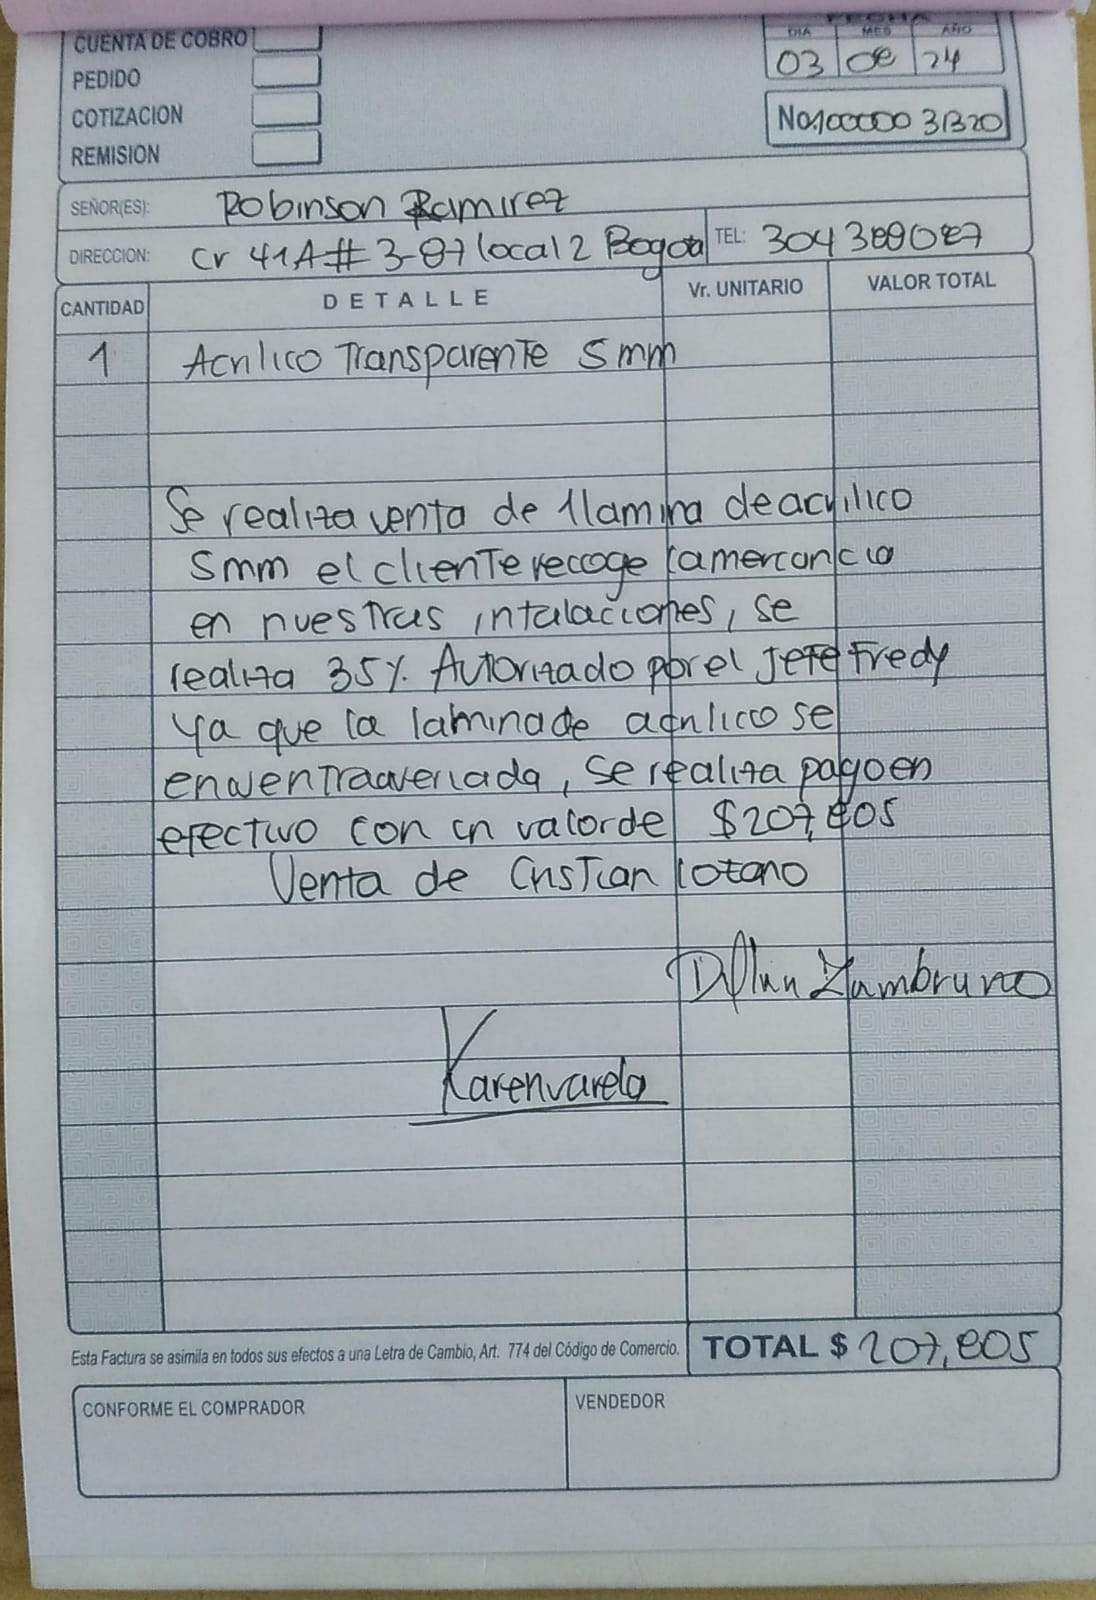 CUENTA DE COBRO
PEDIDO
COTIZACION
REMISION
FECHA
DIA MES AÑO
03 08 24
No.100000 31320
SEÑOR(ES): Robinson Ramirez
DIRECCION: cr 41A # 3-87 local 2 Bogota TEL:
CANTIDAD DETALLE Vr. UNITARIO VALOR TOTAL
1 Acrilico Transparente 5mm
Se realiza venta de 1 lamina de acrilico
5mm el cliente recoge la mercancia
en nuestras intalaciones, se
realiza 35% Autorizado por el Jefe Fredy
ya que la lamina de acrilico se
encuentra averiada, se realiza pago en
efectivo con un valor de $207,805
Venta de Cristian lozano
Zambrano
Karen varela
Esta Factura se asimila en todos sus efectos a una Letra de Cambio, Art. 774 del Código de Comercio.
TOTAL $ 207,805
CONFORME EL COMPRADOR
VENDEDOR